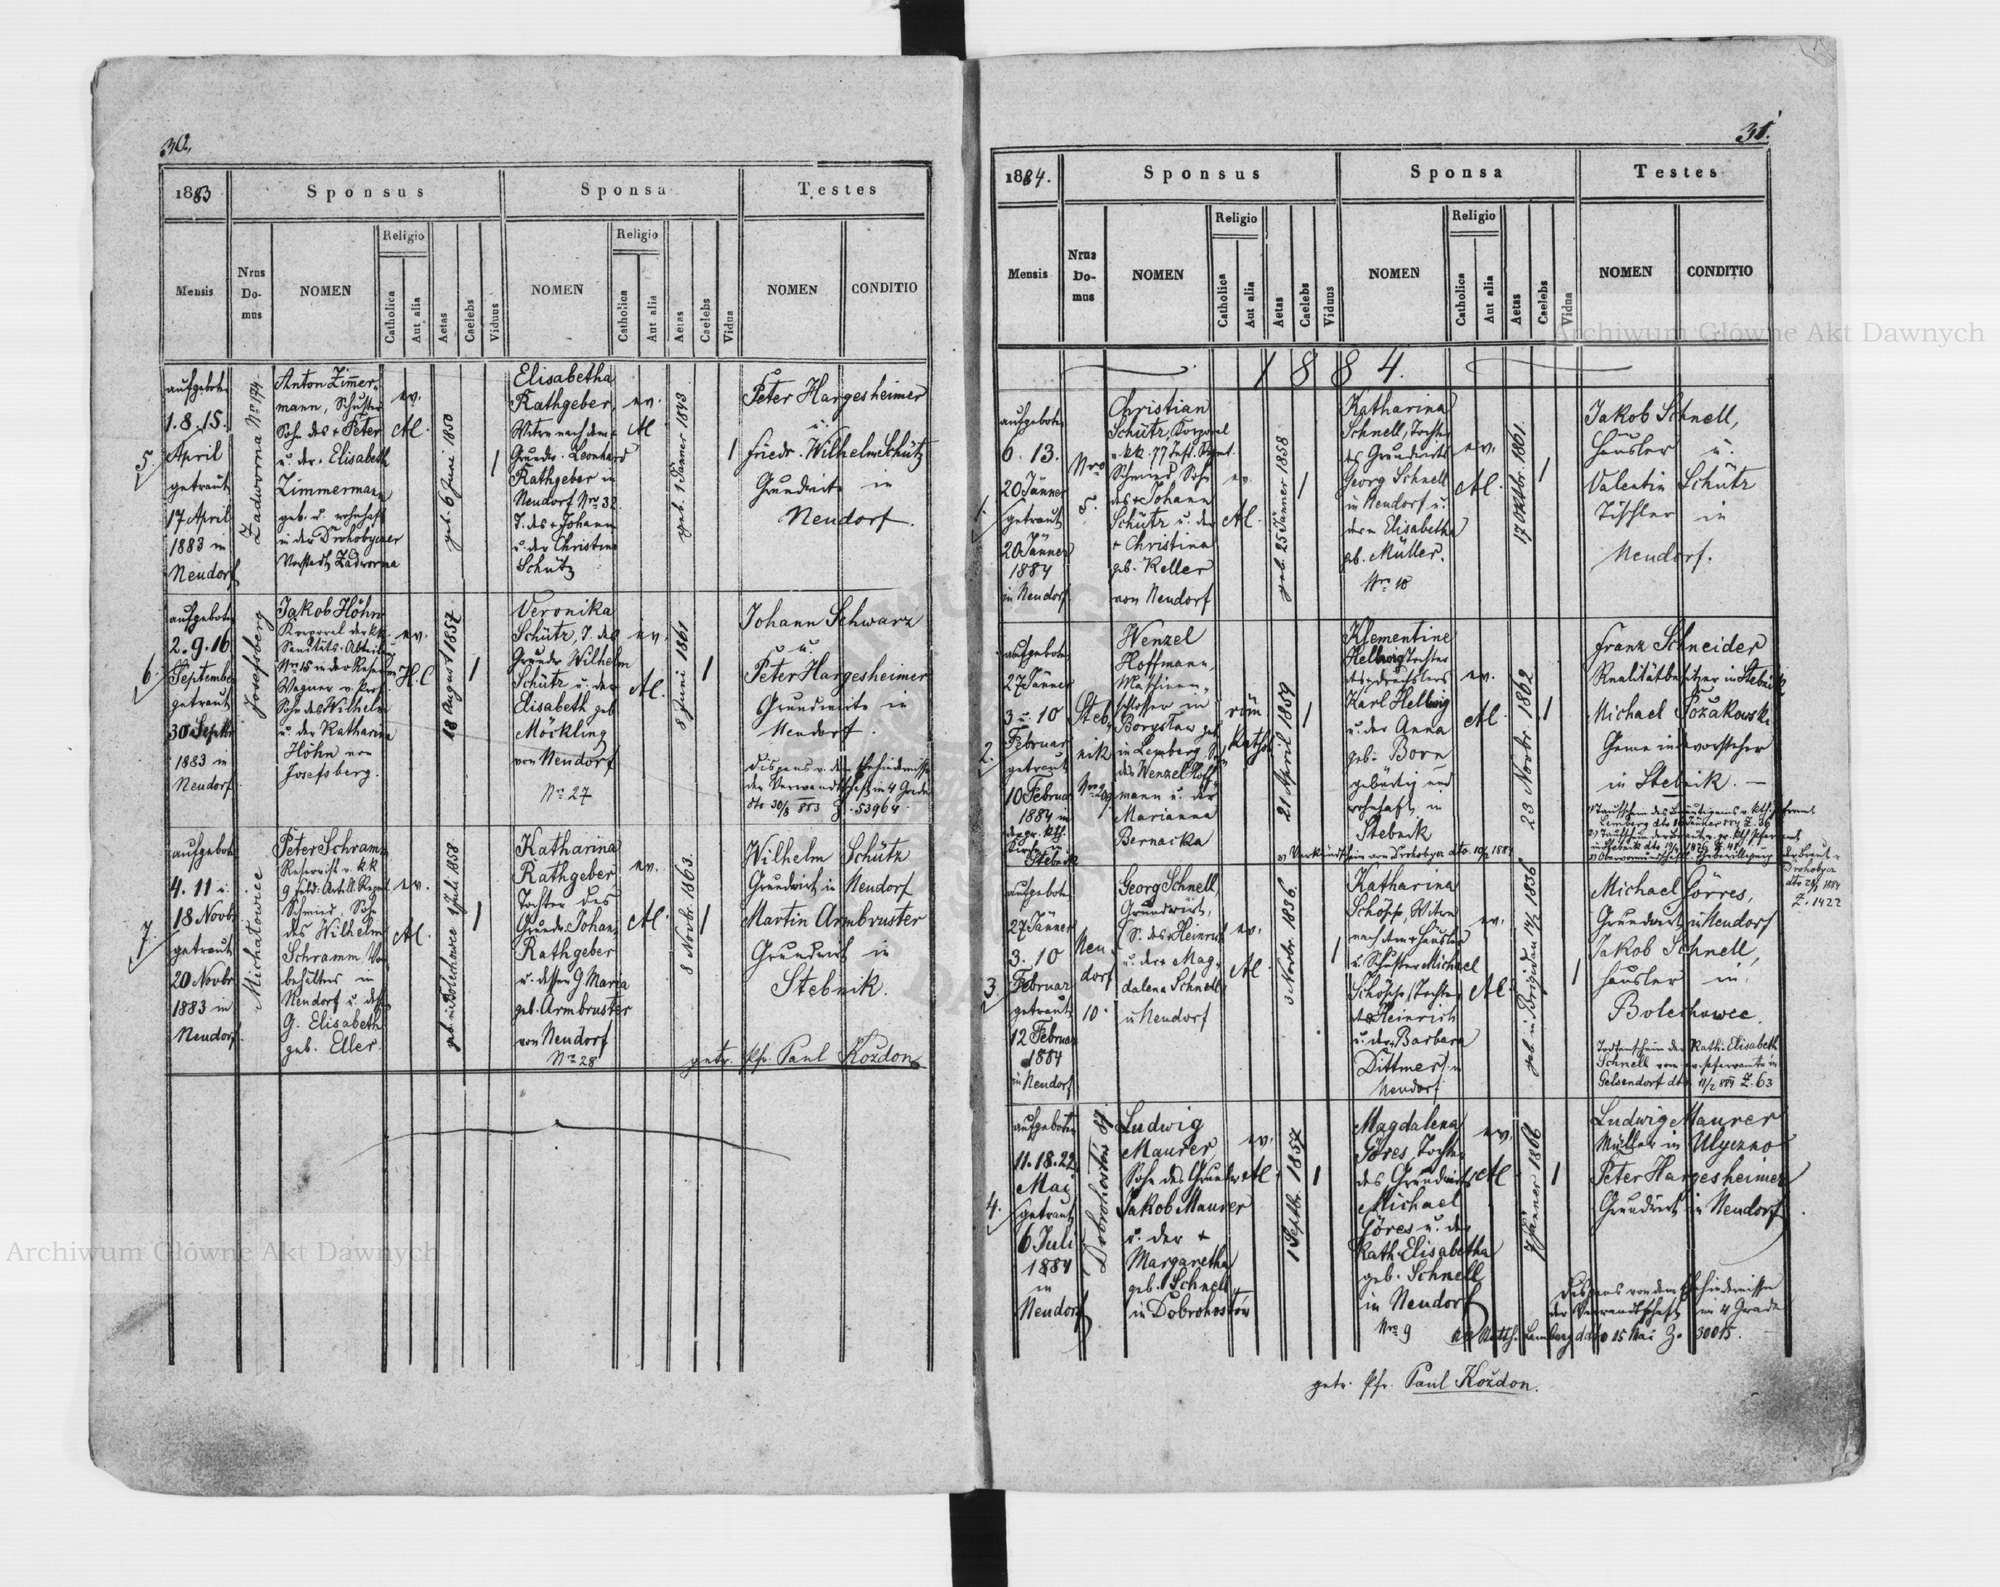 30.
1883
Sponsus
Sponsa
Testes
Mensis
Nrus Do-mus
NOMEN
Religio
Catholica
Aut alia
Aetas
Caelebs
Viduus
NOMEN
Religio
Catholica
Aut alia
Aetas
Caelebs
Vidua
NOMEN
CONDITIO
5.
aufgeboten
1. 8. 15.
April
getraut
17 April
1883 in
Neudorf
Zadworna No 174
Anton Zimmer-
mann, Schuster
Sohn des + Peter
u. der Elisabeth
Zimmermann
geb. u. wohnhaft
in der Drohobyczer
Vorstadt Zadworna
ev.
Al.
geb. 6 Juni 1850
1
Elisabetha
Rathgeber,
Witwe nach dem +
Grundw. Leonhard
Rathgeber in
Neudorf Nro 32
T. des + Johann
u. der Christina
Schütz
ev.
Al
geb. 1 Jänner 1843
1
Peter Hargesheimer
u.
Friedr. Wilhelm Schütz
Grundwirte in
Neudorf.
6.
aufgeboten
2. 9. 16
September
getraut
30 Septbr
1883 in
Neudorf
Josefsberg
Jakob Höhn
Korporal der kk.
Sanitäts-Abteilung
Nro 15 in der Reserve
Wagner v. Prof.
Sohn des Wilhelm
u. der Katharina
Höhn von
Josefsberg.
ev.
H.C
18 August 1857
1
Veronika
Schütz, T. des
Grundw Wilhelm
Schütz u. der
Elisabeth geb.
Möckling
von Neudorf
Nro 27
ev.
Al.
8 Juni 1861
1
Johann Schwarz
u.
Peter Hargesheimer
Grundwirte in
Neudorf.
Dispens v. dem Ehehindernisse
der Verwandtschaft im 4 Grade
dto 30/8 883 Z. 53964.
7.
aufgeboten
4. 11 u.
18 Novbr
getraut
20 Novbr
1883 in
Neudorf.
Michałowice
Peter Schramm
Reservist v. kk
9 Feld-Art. Regmt
Schmied, Sohn
des Wilhelm
Schramm, Vor-
behälter in
Neudorf u. dess.
G. Elisabeth
geb. Eller
ev.
Al.
geb. in Bolechowce 1 Juli 1858
1
Katharina
Rathgeber
Tochter des
Grundw. Johann
Rathgeber
u. dessen G. Maria
geb. Armbruster
von Neudorf
Nro 28
ev.
Al.
8 Novbr. 1863.
1
Wilhelm Schütz
Grundwirt in Neudorf
Martin Armbruster
Grundwirt in
Stebnik.
getr. Pfr. Paul Koždon
31.
1884.
Sponsus
Sponsa
Testes
Mensis
Nrus Do-mus
NOMEN
Religio
Catholica
Aut alia
Aetas
Caelebs
Viduus
NOMEN
Religio
Catholica
Aut alia
Aetas
Caelebs
Vidua
NOMEN
CONDITIO
1884.
1.
aufgeboten
6. 13.
20 Jänner
getraut
20 Jänner
1884
in Neudorf
Nro
5.
Christian
Schütz, Korporal
v. kk. 77 Inft. Regmt.
Schmied, Sohn
des + Johann
Schütz u. der
+ Christina
geb. Keller
von Neudorf
ev.
Al.
geb. 25 Jänner 1858
1
Katharina
Schnell, Tochter
des Grundwirts
Georg Schnell
in Neudorf u.
der Elisabetha
geb. Müller.
Nro 10
ev.
Al.
17 Oktbr. 1861
1
Jakob Schnell,
Häusler u.
Valentin Schütz
Tischler in
Neudorf.
2.
aufgeboten
27 Jänner
3 u. 10
Februar
getraut
10 Februar
1884 in
der gr. kth.
Kirche in
Stebnik
Steb-
nik
Wenzel
Hoffmann,
Maschinen-
schlosser in
Borysław geb.
in Lemberg, Sohn
des Wenzel Hoff-
mann u. der
Marianna
Bernacka
röm
kathol.
21 April 1859
1
Klementine
Hellwig Tochter
des + Drechslers
Karl Hellwig
u. der Anna
geb. Born
gebürtig und
wohnhaft in
Stebnik
ev.
Al.
23 Novbr 1862
1
Franz Schneider
Realitätbesitzer in Stebnik
Michael Pożakowski
Gemeindevorsteher
in Stebnik. —
3) Verkündschein von Drohobycz dto. 10/2 1884
der Braut v.
Drohobycz
Z. 1422
3.
aufgeboten
27 Jänner
3. 10
Februar
getraut
12 Februar
1884
in Neudorf
Neu-
dorf
10.
Georg Schnell,
Grundwirt,
S. des + Heinrich
u. der + Mag-
dalena Schnell
v Neudorf
ev.
Al.
3 Novbr. 1836
1
Katharina
Schösch, Witwe
nach dem + Häusler
u. Schuster Michael
Schösch, Tochter
des Heinrich
u. der Barbara
Dittmer in
Neudorf
ev.
Al.
geb. in Brigidau 14/2 1836
1
Michael Görres,
Grundwirt in Neudorf
Jakob Schnell,
Häusler in
Bolechowce.
Todtenschein der Kath. Elisabeth
Schnell vom ev. Pfarramte in
Gelsendorf dto. 11/2 884 Z. 63
4.
aufgeboten
11. 18. 22
Mai
getraut
6 Juli
1884
in
Neudorf
Dobrohostów 87
Ludwig
Maurer,
Sohn des Grundw
Jakob Maurer
u. der +
Margaretha
geb. Schnell
in Dobrohostów
ev.
Al.
1 Septbr. 1857
1
Magdalena
Göres, Tochter
des Grundwirts
Michael
Göres u. der
Kath. Elisabetha
geb. Schnell
in Neudorf
Nro 9
ev.
Al
7 Jänner 1866
1
Ludwig Maurer
Müller in Ulyczno
Peter Hargesheimer
Grundwirt in Neudorf.
Dispens von dem Ehehindernisse
der Verwandtschaft im 4 Grade
Lemberg ddto 15 Mai Z. 30015.
getr. Pfr. Paul Koždon.
Archiwum Główne Akt Dawnych
Archiwum Główne Akt Dawnych